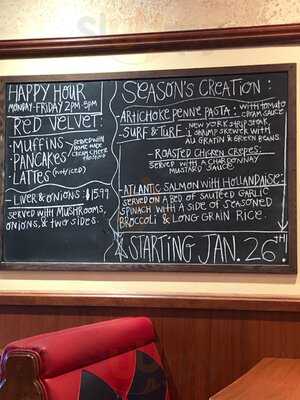 HAPPY HOUR
MONDAY-FRIDAY 2PM-5PM
RED VELVET:
• MUFFINS
• PANCAKES
• LATTES (HOT/ICED)
SERVED WITH
HOME MADE
CREAM CHEESE
- LIVER & ONIONS: $15.99
SERVED WITH MUSHROOMS,
ONIONS, & TWO SIDES.
SEASON'S CREATION:
- ARTICHOKE PENNE PASTA: WITH TOMATO CREAM SAUCE
- SURF & TURF: NEW YORK STRIP STEAK
& SHRIMP SKEWER WITH
AU GRATIN & GREEN BEANS
- ROASTED CHICKEN CREPES:
SERVED WITH A CHARDONNAY
MUSTARD SAUCE
- ATLANTIC SALMON WITH HOLLANDAISE:
SERVED ON A BED OF SAUTEED GARLIC
SPINACH WITH A SIDE OF SEASONED
BROCCOLI & LONG GRAIN RICE.
STARTING JAN. 26TH